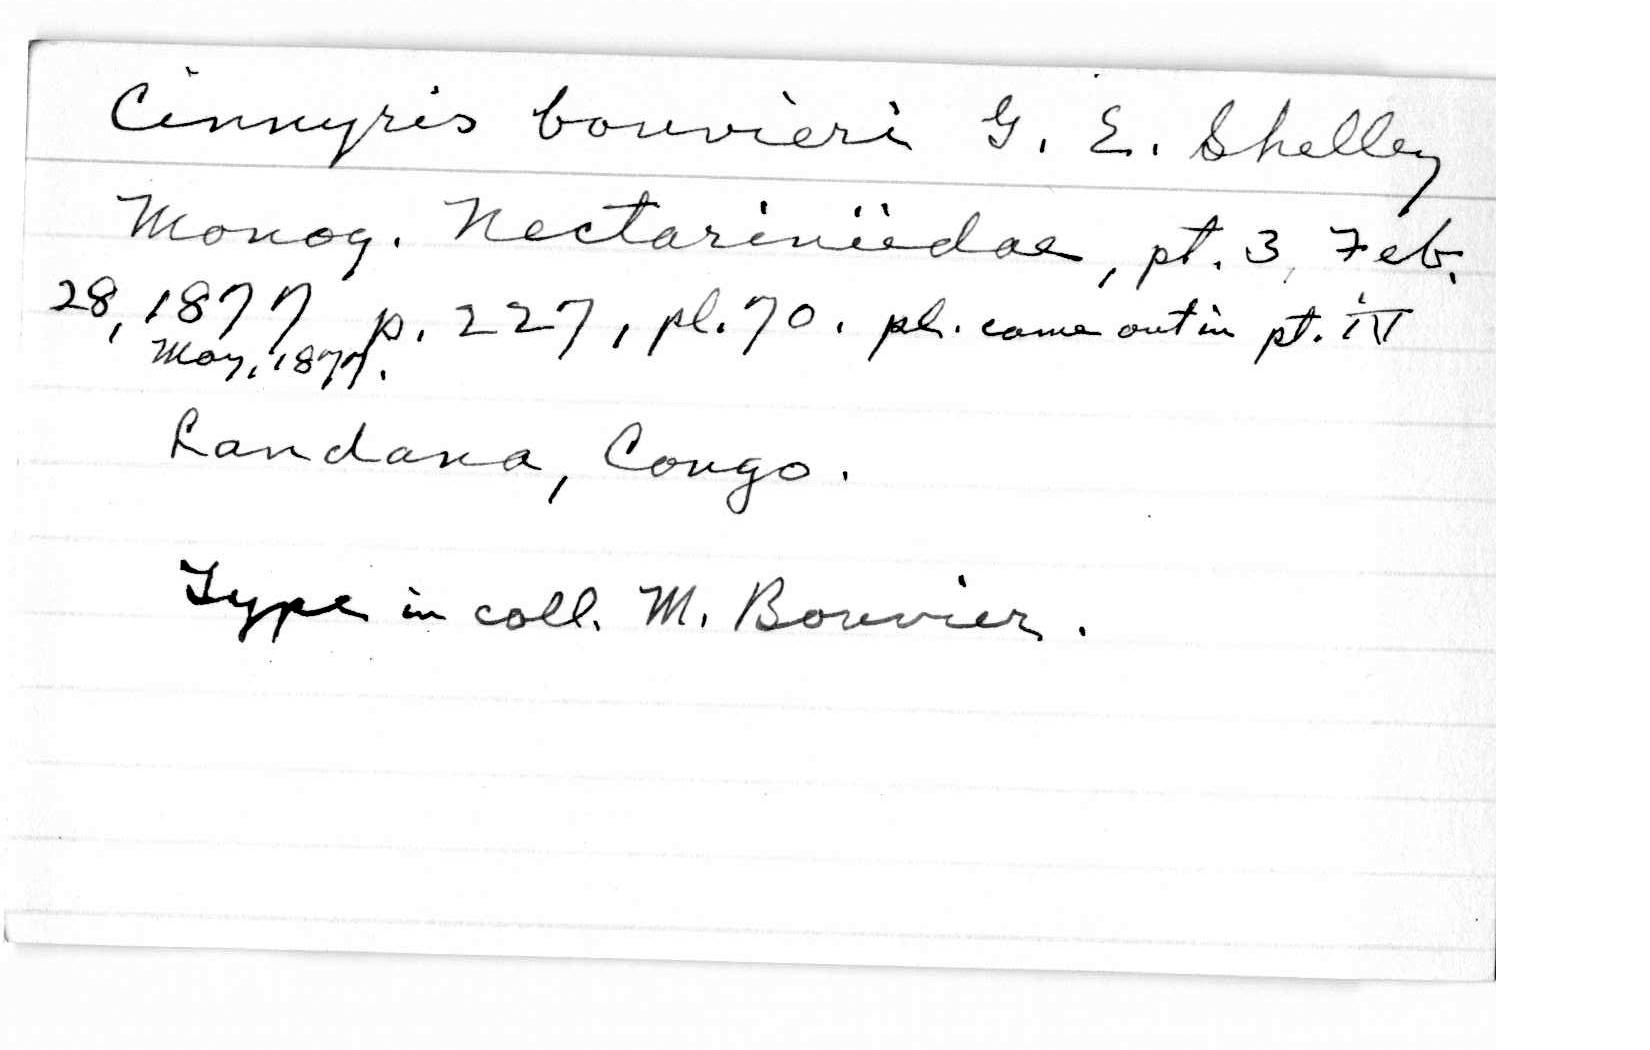 Cinnyris bouvieri G. E. Shelley
Monog. Nectariniidae, pt. 3, Feb.
28, 1877 p. 227, pl. 70. pl. came out in pt. IV
May, 1877.
Landana, Congo.
Type in coll. M. Bouvier.